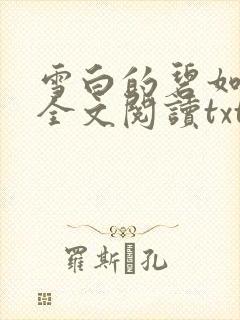 雪白的碧如
全文閱讀txt
羅斯 孔